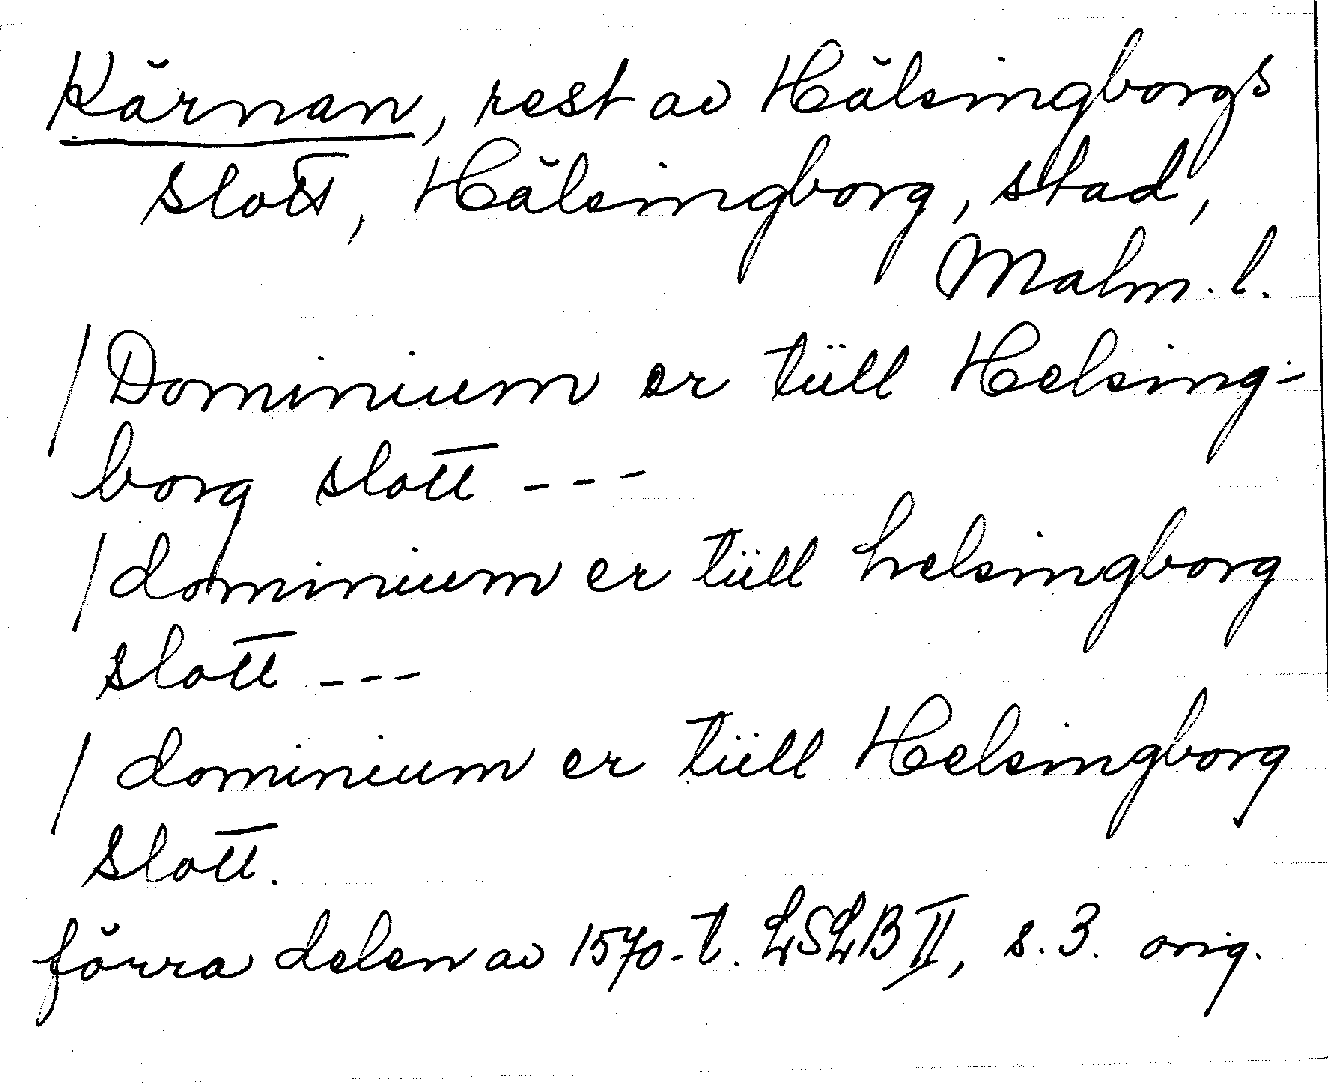 Kärnan, rest av Hälsingborgs
slott, Hälsingborg, stad,
Malm. l.
/ Dominium er tüll Helsing-
borg slott ---
/ dominium er tüll helsingborg
slott ---
/ dominium er tüll Helsingborg
slott.
förra delen av 1570-t. LSLB II, s. 3. orig.